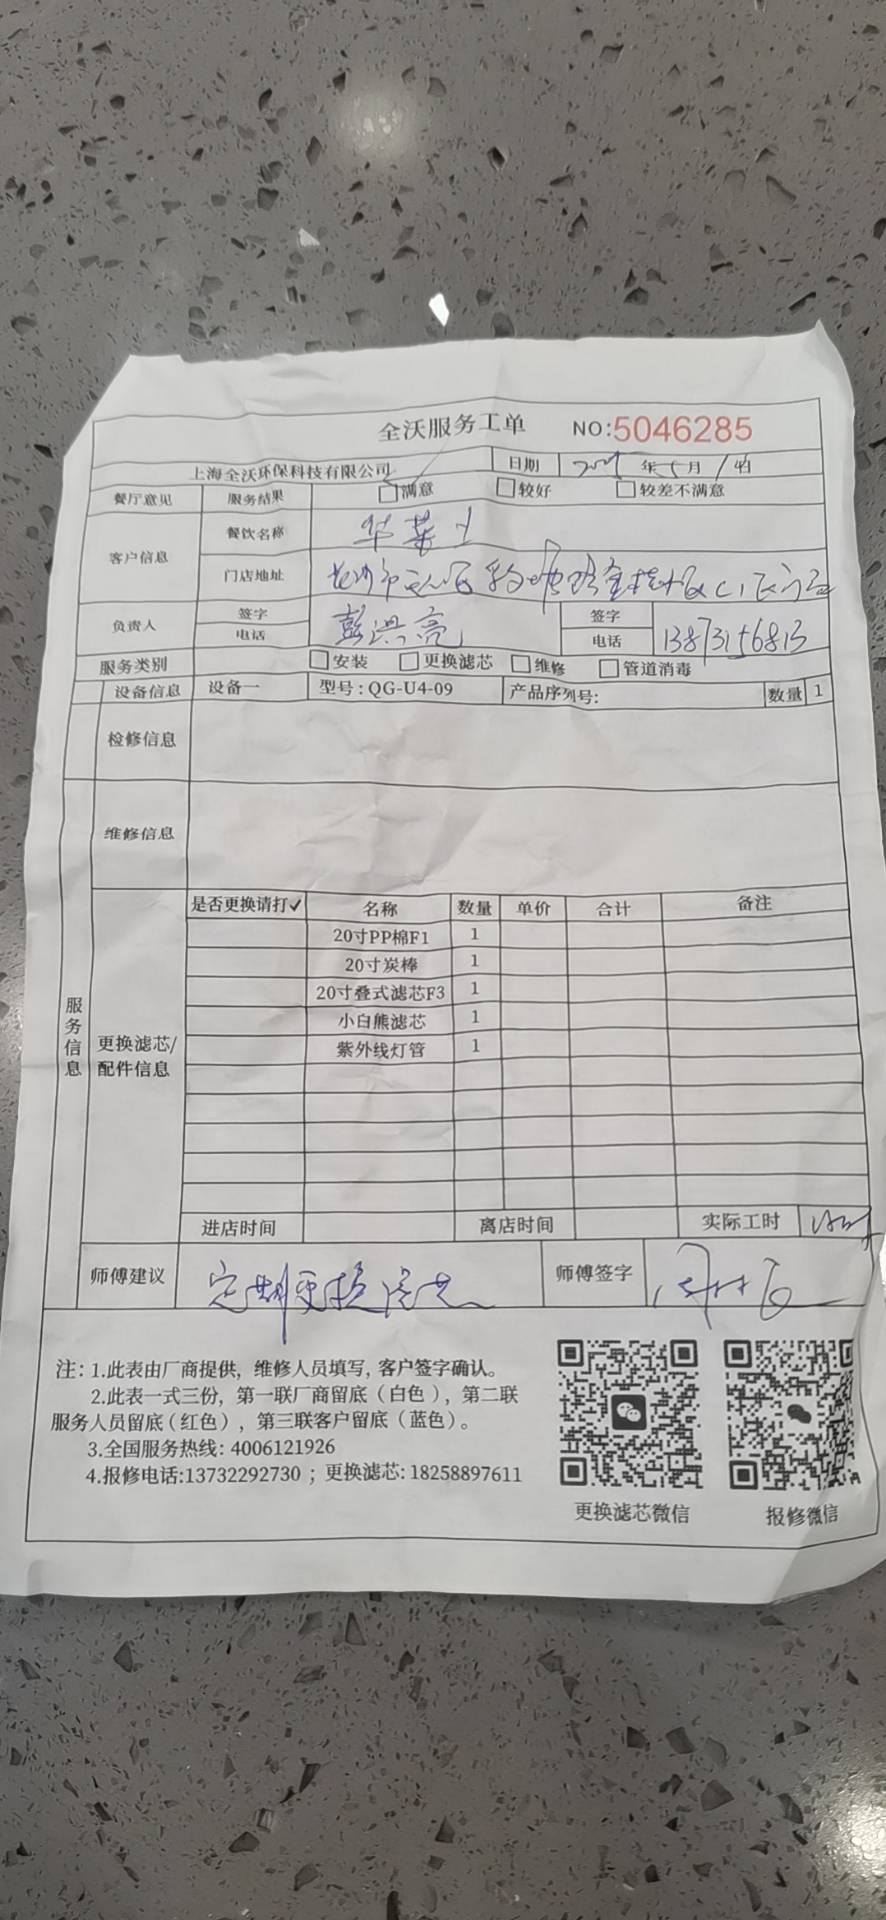 全沃服务工单 NO:5046285
上海全沃环保科技有限公司 日期 年 月 日
餐厅意见 服务结果 满意 较好 较差不满意
客户信息 餐饮名称 华莱士
门店地址 长沙市
负责人 签字 彭洪亮 签字
电话 电话 13873156813
服务类别 安装 更换滤芯 维修 管道消毒
设备信息 设备一 型号:QG-U4-09 产品序列号: 数量 1
检修信息
维修信息
服务信息
更换滤芯/配件信息
是否更换请打✓ 名称 数量 单价 合计 备注
20寸PP棉F1 1
20寸炭棒 1
20寸叠式滤芯F3 1
小白熊滤芯 1
紫外线灯管 1
进店时间 离店时间 实际工时
师傅建议 定期更换滤芯 师傅签字
注:1.此表由厂商提供,维修人员填写,客户签字确认。
2.此表一式三份,第一联厂商留底(白色),第二联
服务人员留底(红色),第三联客户留底(蓝色)。
3.全国服务热线:4006121926
4.报修电话:13732292730;更换滤芯:18258897611
更换滤芯微信 报修微信